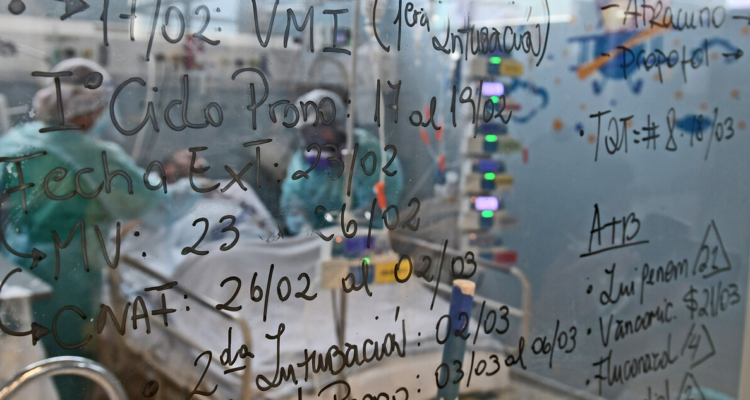 17/02: VMI (1era Intubación)
1° Ciclo Prono: 17 al 19/02
Fecha Ext: 23/02
MV: 23 26/02
CNAF: 26/02 al 02/03
2da Intubación: 02/03
Prono: 03/03 al 06/03
- Atracurio
- Propofol →
TQT=# 8 18/03
ATB
• Imipenem 21
• Vancomic. $21/03
• Fluconazol 4